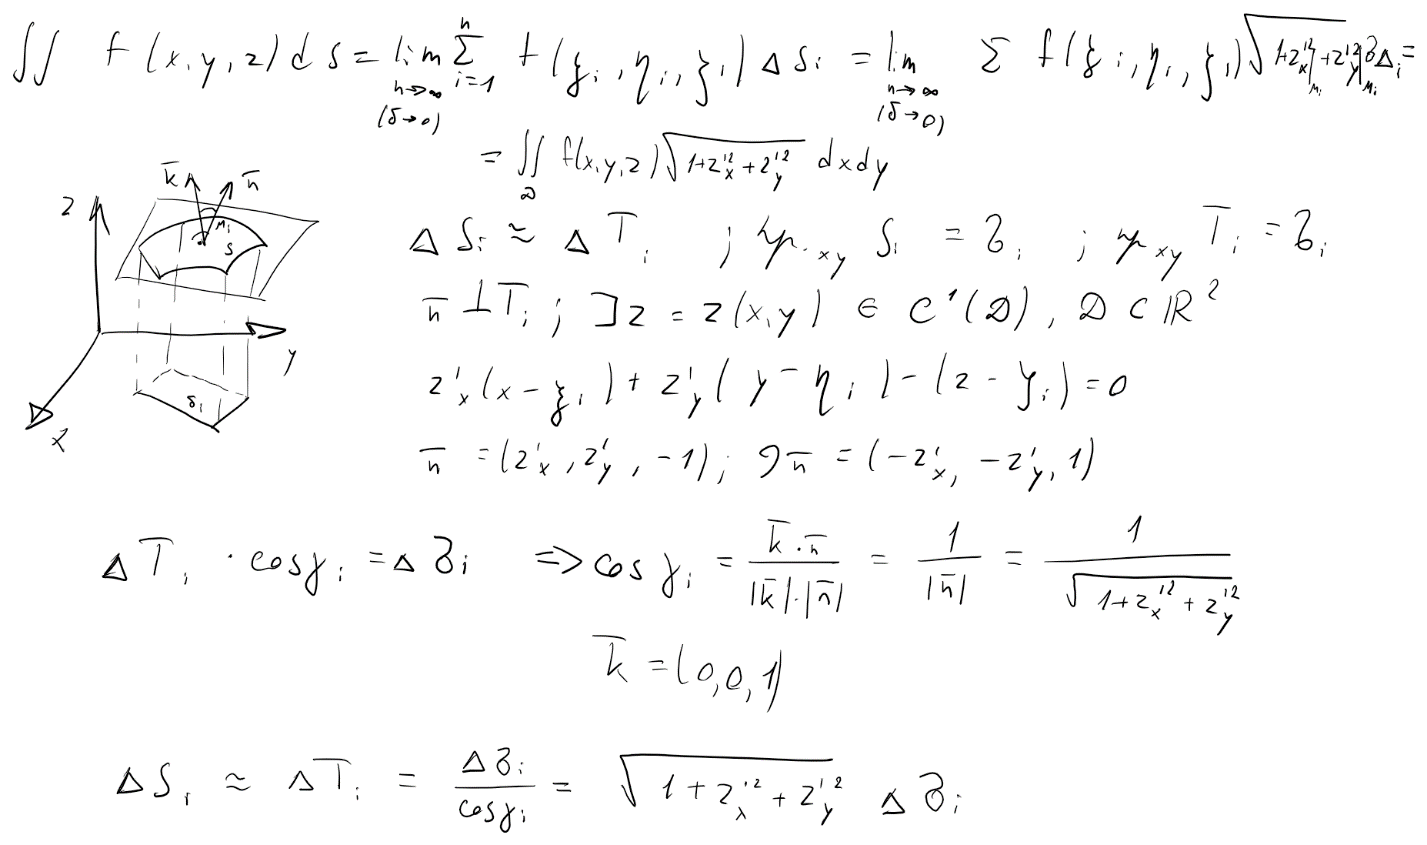 ∬ f(x,y,z)ds = lim n→∞ (δ→0) Σ i=1 n f(ξi, ηi, ζi) Δ Si = lim n→∞ (δ→0) Σ f(ξi, ηi, ζi) √(1+z'²x|Mi + z'²y|Mi) Δσi =
= ∬D f(x,y,z) √(1+z'²x+z'²y) dxdy
z k̄ n̄ Mi S y x σi
Δ Si ≈ Δ Ti ; пр.xy Si = σi ; прxy Ti = σi
n̄ ⊥ Ti ; ∃ z = z(x,y) ∈ C'(D), D ⊂ ℝ²
z'x(x-ξi) + z'y(y-ηi) - (z-ζi) = 0
n̄ = (z'x, z'y, -1); ∂n̄ = (-z'x, -z'y, 1)
ΔTi · cosγi = Δσi => cosγi = k̄·n̄ / |k̄|·|n̄| = 1 / |n̄| = 1 / √(1+z'²x+z'²y)
k̄ = (0,0,1)
ΔSi ≈ ΔTi = Δσi / cosγi = √(1+z'²x+z'²y) Δσi